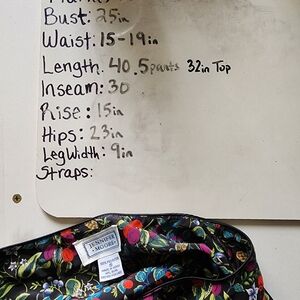 Bust: 25in
Waist: 15-19in
Length: 40.5pants 32in Top
Inseam: 30
Rise: 15in
Hips: 23in
Leg Width: 9in
Straps:
JENNIFER
MOORE